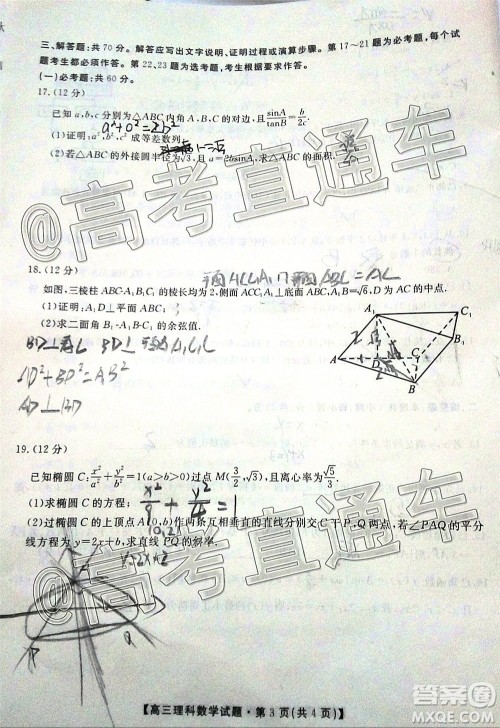 三、解答题:共70分。解答应写出文字说明、证明过程或演算步骤。第17~21题为必考题,每个试
题考生都必须作答。第22、23题为选考题,考生根据要求作答。
(一)必考题:共60分。
17.(12分)
已知a,b,c分别为△ABC内角A,B,C的对边,且sinA/tanB=b/2c.
a²+c²=2b²
(1)证明:a²,b²,c²成等差数列;
(2)若△ABC的外接圆半径为√3,且a=2bsinA,求△ABC的面积.
@高考直通车
18.(12分)
平面ACC₁A₁∩平面ABC=AC
如图,三棱柱ABC-A₁B₁C₁的棱长均为2,侧面ACC₁A₁⊥底面ABC,A₁B=√6,D为AC的中点.
(1)证明:A₁D⊥平面ABC;
(2)求二面角B₁-A₁B-C₁的余弦值.
BD⊥AC BD⊥平面A₁C₁C
A₁D²+BD²=AB²
AD⊥BD
A₁
C₁
B₁
A
D
C
B
@高考直通车
19.(12分)
已知椭圆C:x²/a²+y²/b²=1(a>b>0)过点M(3/2,√3),且离心率为√5/3.
(1)求椭圆C的方程;
x²/9+y²/4=1
(2)过椭圆C的上顶点A(0,b)作两条互相垂直的直线分别交C于P,Q两点,若∠PAQ的平分
线方程为y=2x+b,求直线PQ的斜率.
y=2x+2
P
Q
@高考直通车
【高三理科数学试题·第3页(共4页)】
答案圈